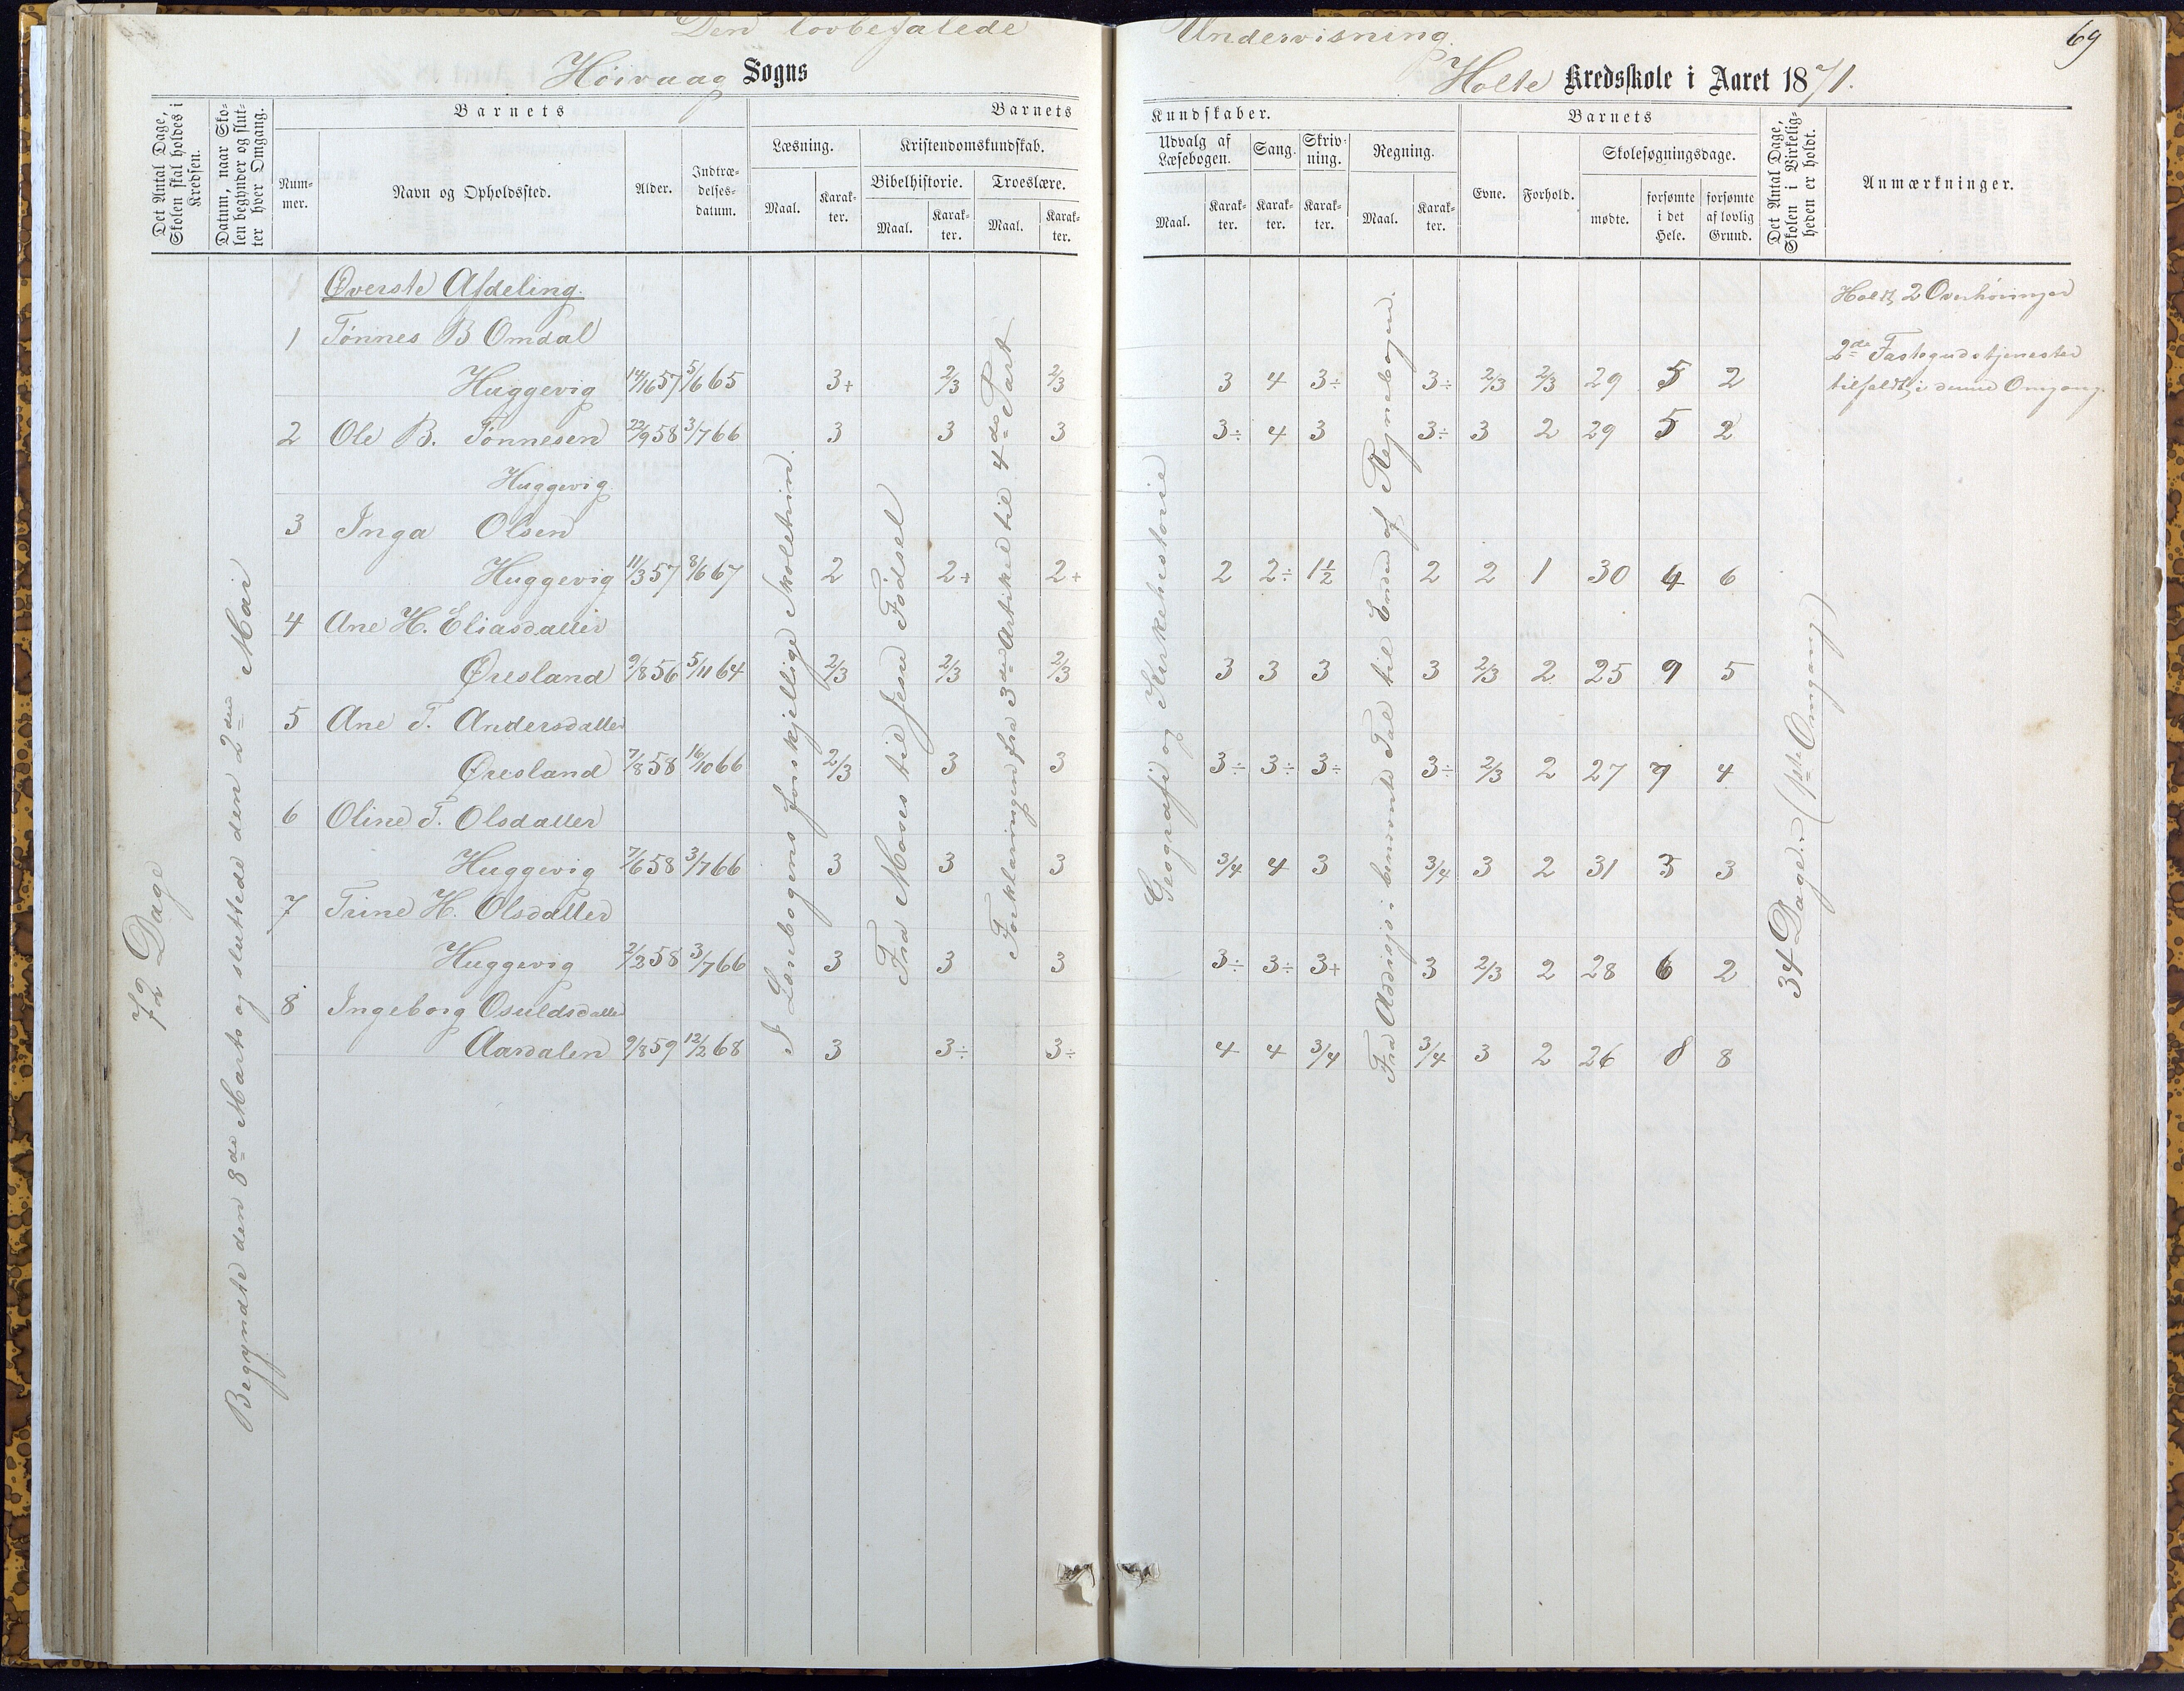 Den lovbefalede Undervisning
69
Høivaag Sogns
Holte Kredsskole i Aaret 1871.
Det Antal Dage, Skolen skal holdes i Kredsen.
Datum, naar Skolen begynder og slutter hver Omgang.
Barnets
Nummer.
Navn og Opholdssted.
Alder.
Indtrædelsesdatum.
Barnets
Læsning.
Maal.
Karakter.
Kristendomskundskab.
Bibelhistorie.
Maal.
Karakter.
Troeslære.
Maal.
Karakter.
Kundskaber.
Udvalg af Læsebogen.
Maal.
Karakter.
Sang.
Karakter.
Skrivning.
Karakter.
Regning.
Maal.
Karakter.
Barnets
Evne.
Forhold.
Skolesøgningsdage.
mødte.
forsømte i det Hele.
forsømte af lovlig Grund.
Det Antal Dage, Skolen i Virkeligheden er holdt.
Anmærkninger.
72 Dage
Begyndte den 8de Marts og sluttede den 2den Mai
Øverste Afdeling.
1 Tønnes B Omdal
Huggevig 14/1657 5/665 3+ 2/3 2/3 3 4 3÷ 3÷ 2/3 2/3 29 5 2
2 Ole B. Tønnesen 22/958 3/766 3 3 3 3÷ 4 3 3÷ 3 2 29 5 2
Huggevig
3 Inga Olsen
Huggevig 11/357 8/667 2 2+ 2+ 2 2÷ 1½ 2 2 1 30 4 6
4 Ane H. Eliasdatter
Øresland 9/856 5/1164 2/3 2/3 2/3 3 3 3 3 2/3 2 25 9 5
5 Ane T. Andersdatter
Øresland 7/858 16/1066 2/3 3 3 3÷ 3÷ 3÷ 3÷ 2/3 2 27 7 4
6 Oline T. Olsdatter
Huggevig 7/658 3/766 3 3 3 3/4 4 3 3/4 3 2 31 3 3
7 Trine H. Olsdatter
Huggevig 2/258 3/766 3 3 3 3÷ 3÷ 3+ 3 2/3 2 28 6 2
8 Ingeborg Osuldsdatter
Aardalen 9/859 12/268 3 3÷ 3÷ 4 4 3/4 3/4 3 2 26 8 8
I Læsebogens forskjellige Skoletrin.
Fra Moses til Jesu Fødsel
Forklaringen fra 3die Artikel til 4de Part
Geografi og Kirkehistorie
Fra Addisjo i benævnte Tal til Enden af Regnebogen.
34 Dage. (1ste Omgang)
Holdt 2 Overhøringer
2de Fastegudstjenester
tilfaldt i denne Omgang.